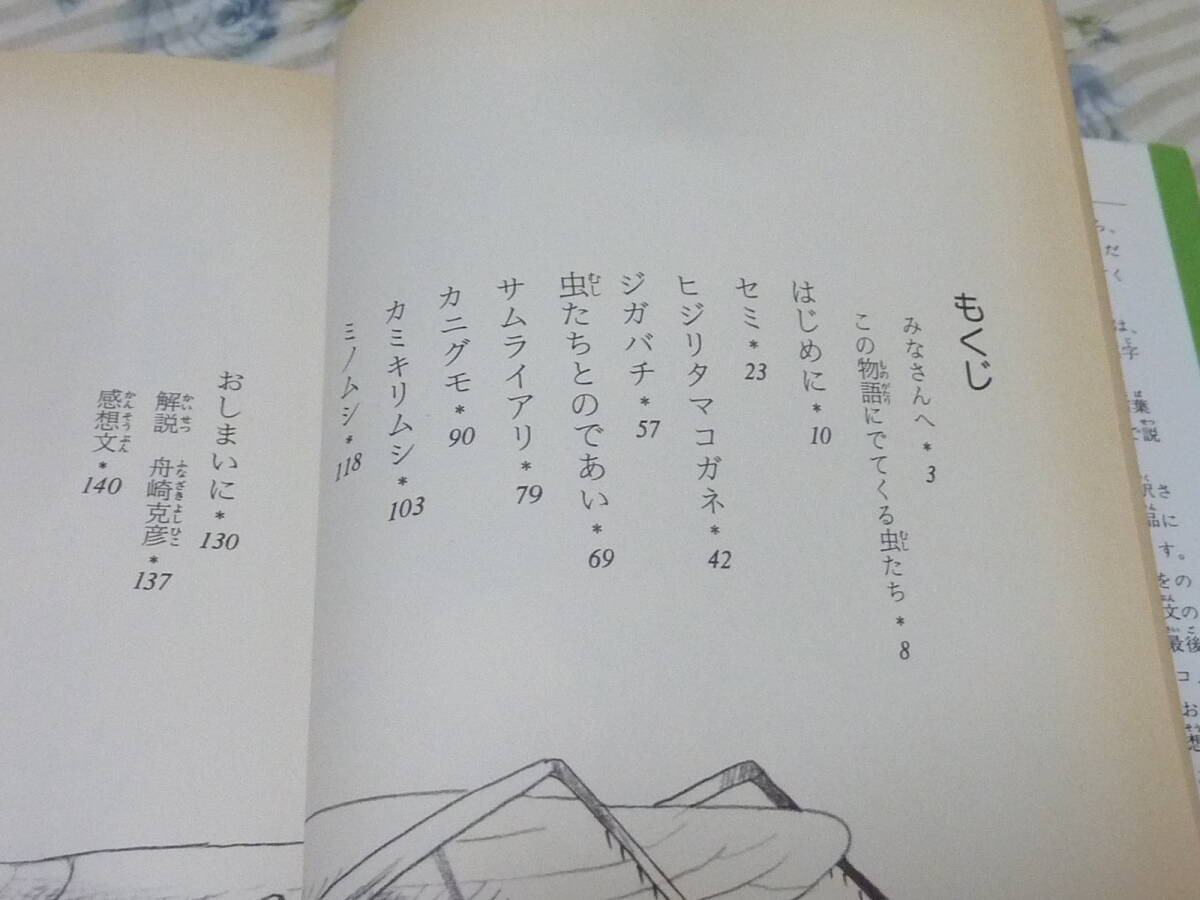 もくじ
みなさんへ * 3
この物語にでてくる虫たち * 8
はじめに * 10
セミ * 23
ヒジリタマコガネ * 42
ジガバチ * 57
虫たちとのであい * 69
サムライアリ * 79
カニグモ * 90
カミキリムシ * 103
ミノムシ * 118
おしまいに * 130
解説 舟崎克彦 * 137
感想文 * 140